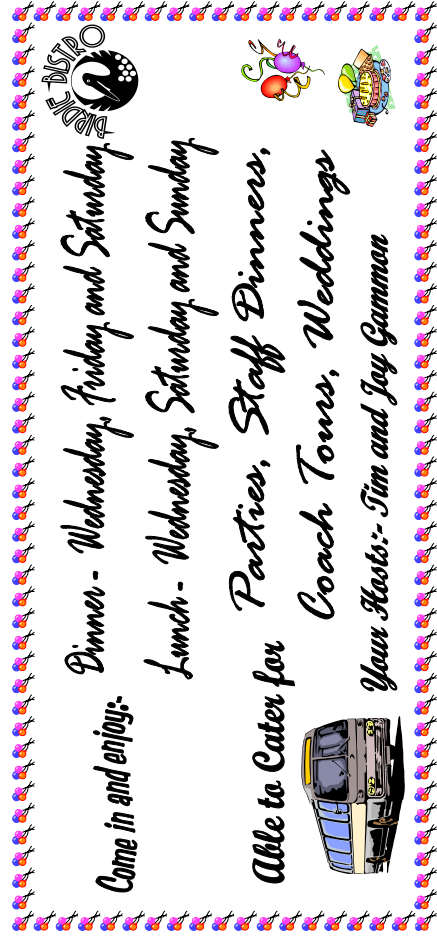 BIRDIE BISTRO
Come in and enjoy:-
Dinner - Wednesday, Friday and Saturday
Lunch - Wednesday, Saturday and Sunday
Able to Cater for
Parties, Staff Dinners,
Coach Tours, Weddings
Your Hosts:- Tim and Joy Gammon